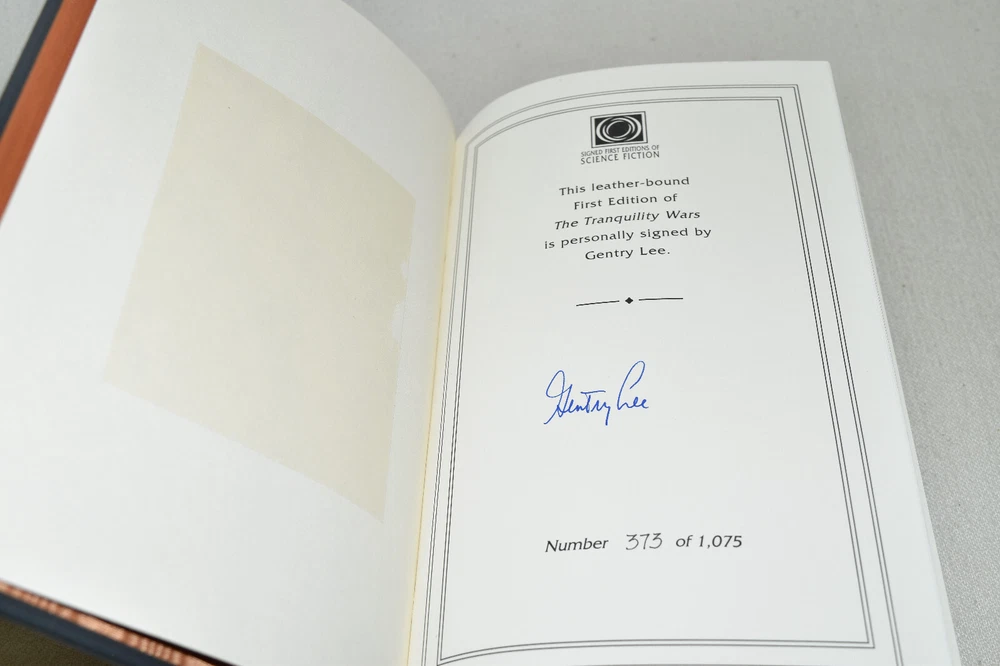 SIGNED FIRST EDITIONS OF
SCIENCE FICTION
This leather-bound
First Edition of
The Tranquility Wars
is personally signed by
Gentry Lee.
Gentry Lee
Number 373 of 1,075